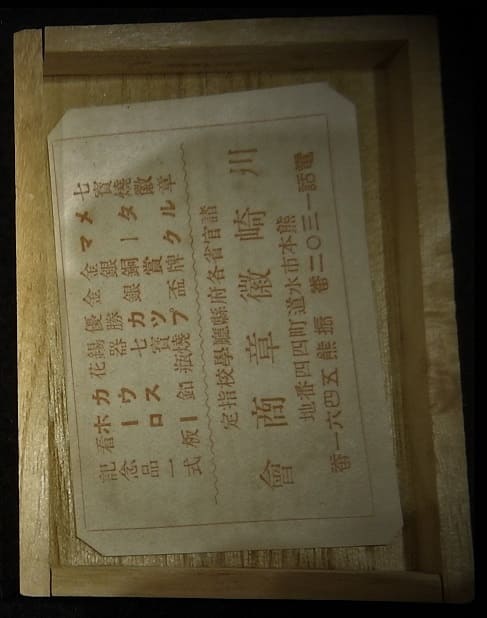 七寶燒徽章
メタル
マーク
金銀銅賞牌
金銀盃
優勝カップ
錫器七寶燒
花瓶
カウス釦
ホーロー看板
記念品一式
諸官省各府縣廳學校指定
川崎徽章商會
熊本市水道町四四番地
電話一三〇二番
振熊五四六一番